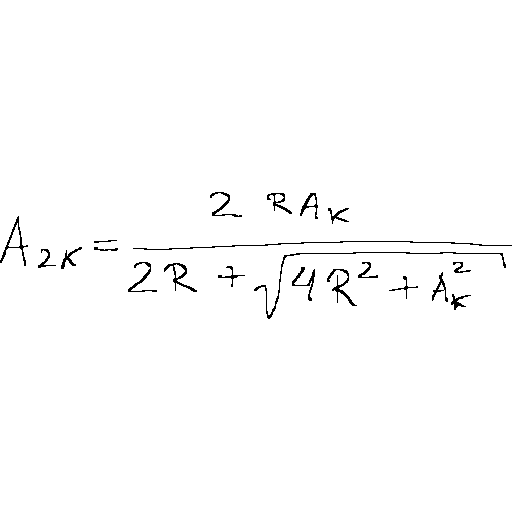 A_{2K} = \frac{2 R A_K}{2R + \sqrt{4R^2 + A_K^2}}